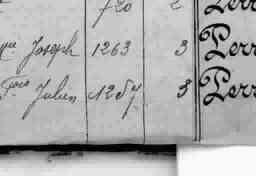 720 2 Perr
Joseph 1263 3 Perr
Fçois Julien 1257 3 Perr